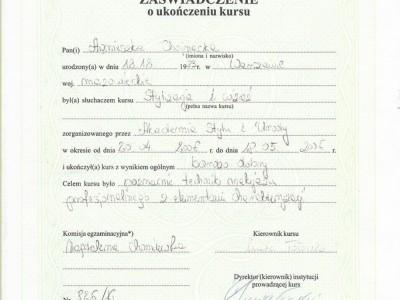 ZAŚWIADCZENIE
o ukończeniu kursu
Pan(i) Agnieszka
(imiona i nazwisko)
urodzony(a) w dniu 18.18. 19 r. w Warszawa
woj. mazowieckie
był(a) słuchaczem kursu Stylizacja i wizaż
(pełna nazwa kursu)
zorganizowanego przez Akademia Stylu i Urody
w okresie od dnia 20.04 2006 r. do dnia 12.05 2006 r.
i ukończył(a) kurs z wynikiem ogólnym bardzo dobry
Celem kursu było poznanie technik makijażu
profesjonalnego z elementami charakteryzacji
Komisja egzaminacyjna*) Kierownik kursu
Magdalena
Dyrektor (kierownik) instytucji
prowadzącej kurs
Nr